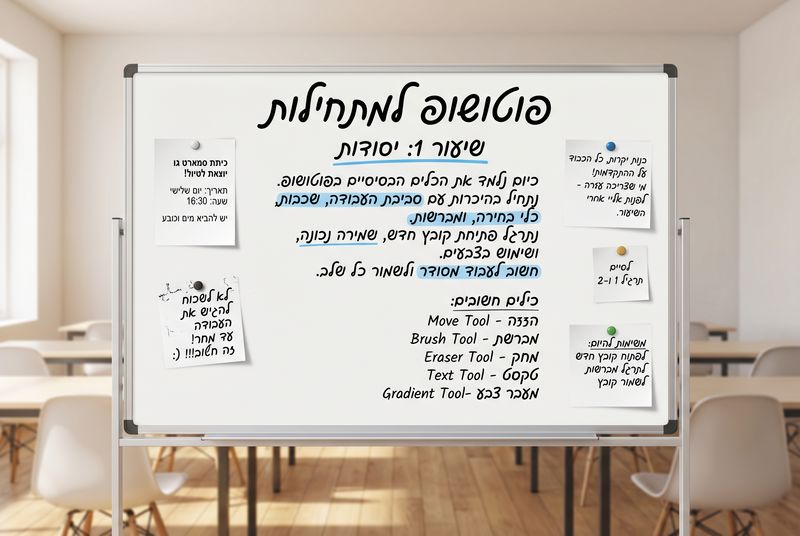 פוטושופ למתחילות
שיעור 1: יסודות
כיום נלמד את הכלים הבסיסיים בפוטושופ.
נתחיל בהיכרות עם סביבת העבודה, שכבות,
כלי בחירה, ומברשות.
נתרגל פתיחת קובץ חדש, שמירה נכונה,
ושימוש בצבעים.
חשוב לעבוד מסודר ולשמור כל שלב.
כילים חשובים:
הזזה - Move Tool
מברשת - Brush Tool
מחק - Eraser Tool
טקסט - Text Tool
מעבר צבע -Gradient Tool
בנות יקרות, כל הכבוד
על ההתקדמות!
מי שצריכה עזרה -
לפנות אליי אחרי
השיעור.
לסיים
תרגיל 1 ו-2
משימות להיום:
לפתוח קובץ חדש
לתרגל מברשות
לשמור קובץ
כיתת סמארט גו
יוצאת לטיול!
תאריך: יום שלישי
שעה: 16:30
יש להביא מים וכובע
לא לשכוח
להגיש את
העבודה
עד מחר!
זה חשוב!!! (: